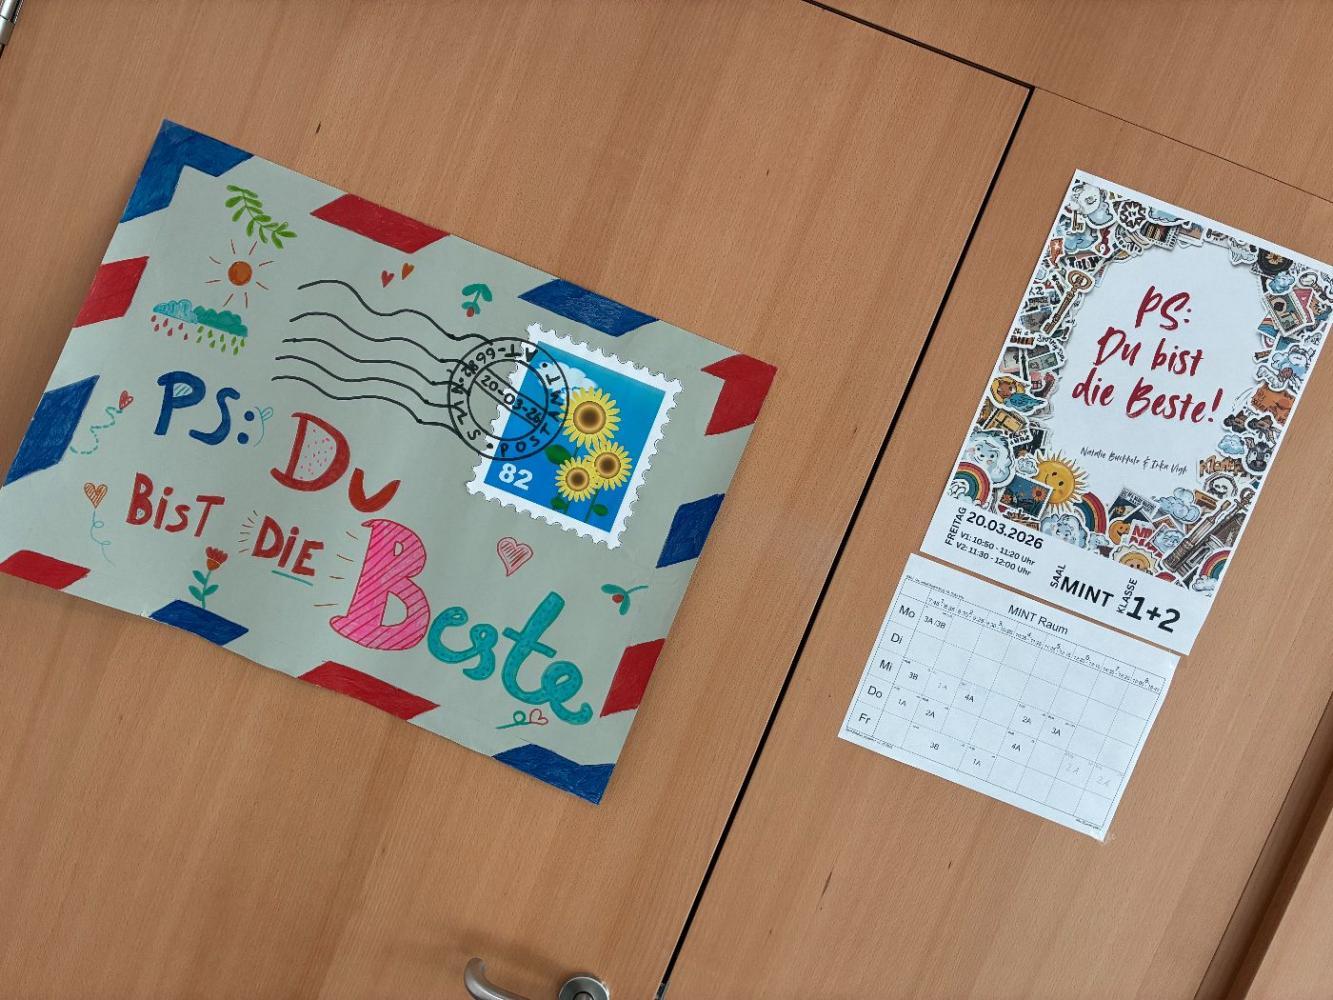 PS: Du
BisT DiE
Beste
20-03-26
POSTAMT
82
PS:
Du bist
die Beste!
Natalie Buchholz & Inka Vigh
FREITAG
20.03.2026
V1: 10:50 - 11:20 Uhr
V2: 11:30 - 12:00 Uhr
SAAL
MINT
KLASSE
1+2
MINT Raum
Mo 3A /3B
Di
Mi 3B 4A
Do 1A 2A 2A 3A
Fr 3B 1A 4A 2A 2A